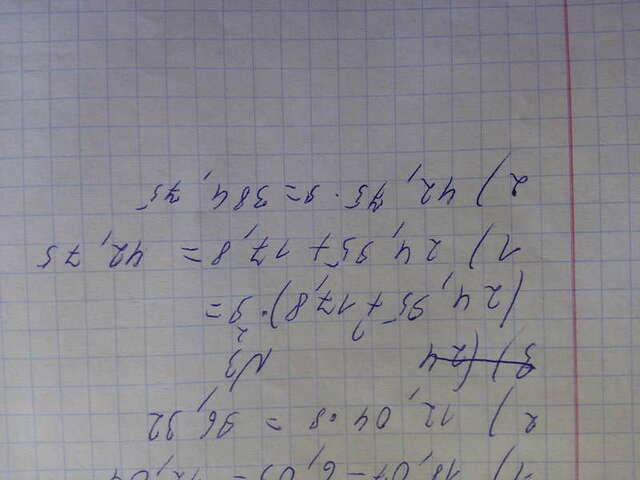 1) 18,07 - 6,03 = 12,04
2) 12,04 · 8 = 96,32
3) (24
№3
(24,95 + 17,8) · 9 =
1) 24,95 + 17,8 = 42,75
2) 42,75 · 9 = 384,75